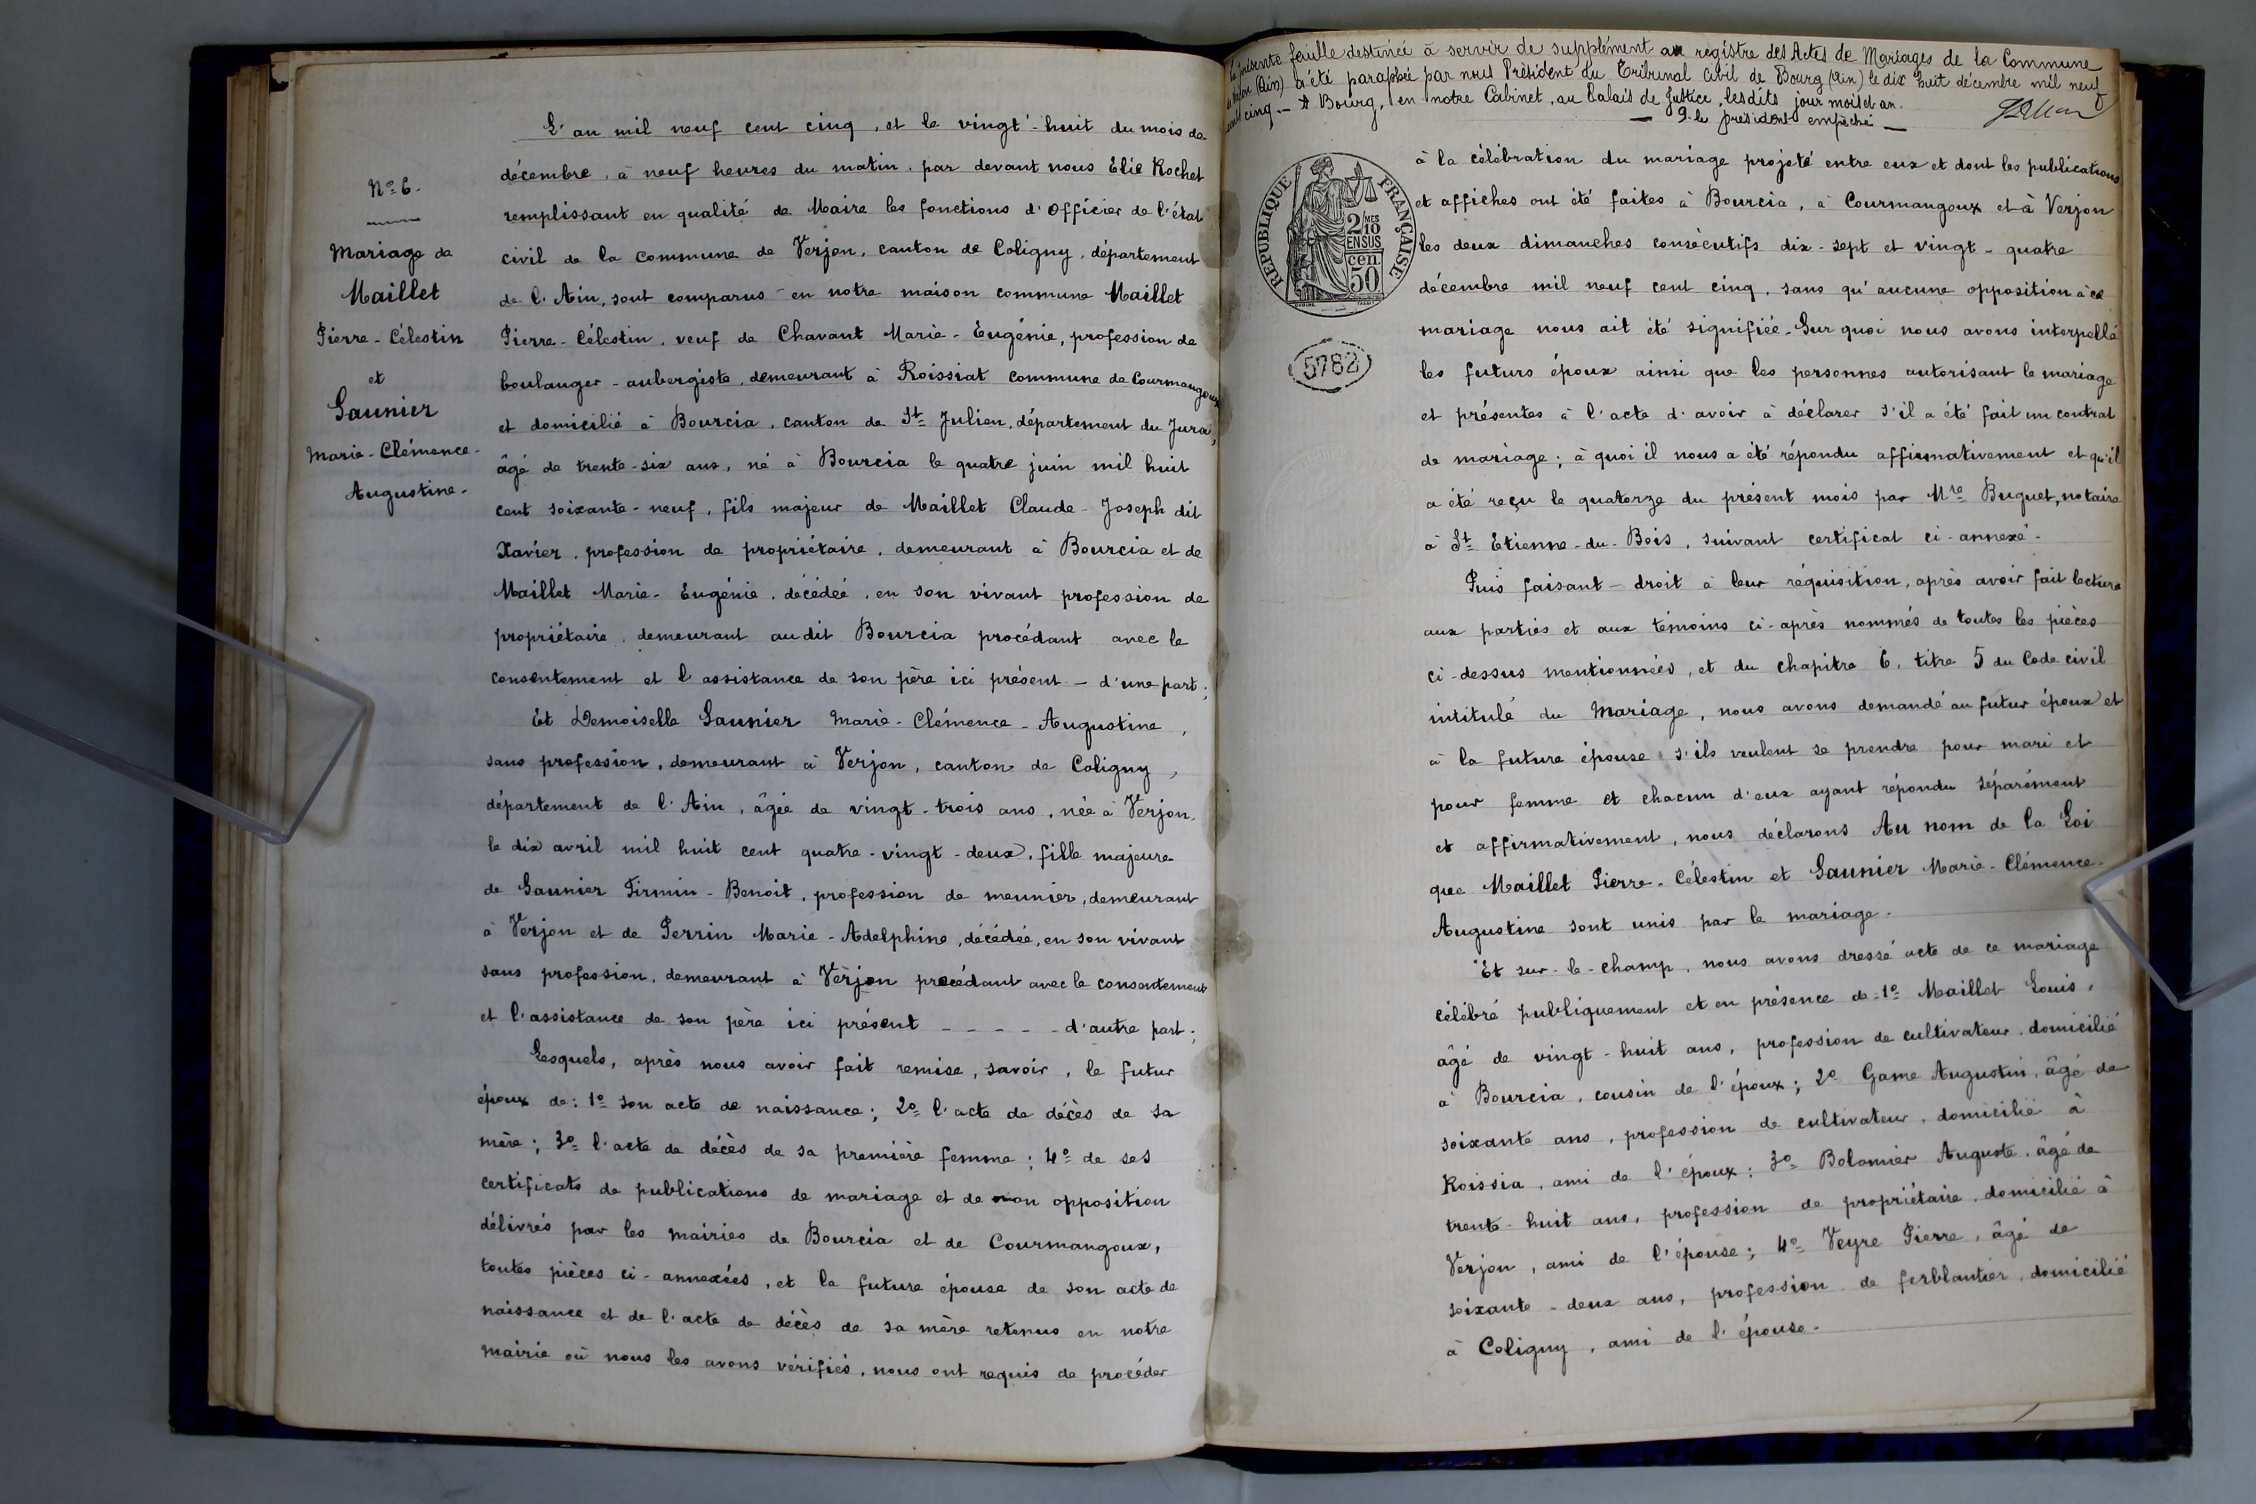 N° 6.
Mariage de
Maillet
Pierre-Célestin
et
Gaunier
Marie-Clémence-
Augustine.
L'an mil neuf cent cinq, et le vingt-huit du mois de
décembre, à neuf heures du matin, par devant nous Elie Rochet
remplissant en qualité de Maire les fonctions d'Officier de l'état
civil de la commune de Verjon, canton de Coligny, département
de l'Ain, sont comparus en notre maison commune Maillet
Pierre-Célestin, veuf de Chavant Marie-Eugénie, profession de
boulanger-aubergiste, demeurant à Roissiat commune de Courmangoux
et domicilié à Bourcia, canton de St Julien, département du Jura,
âgé de trente-six ans, né à Bourcia le quatre juin mil huit
cent soixante-neuf, fils majeur de Maillet Claude-Joseph dit
Xavier, profession de propriétaire, demeurant à Bourcia et de
Maillet Marie-Eugénie, décédée, en son vivant profession de
propriétaire, demeurant audit Bourcia procédant avec le
consentement et l'assistance de son père ici présent — d'une part;
Et Demoiselle Gaunier Marie-Clémence-Augustine,
sans profession, demeurant à Verjon, canton de Coligny,
département de l'Ain, âgée de vingt-trois ans, née à Verjon,
le dix avril mil huit cent quatre-vingt-deux, fille majeure
de Gaunier Firmin-Benoit, profession de meunier, demeurant
à Verjon et de Perrin Marie-Adelphine, décédée, en son vivant
sans profession, demeurant à Verjon procédant avec le consentement
et l'assistance de son père ici présent - - - - - d'autre part;
Lesquels, après nous avoir fait remise, savoir, le futur
époux de: 1° son acte de naissance; 2° l'acte de décès de sa
mère; 3° l'acte de décès de sa première femme; 4° de ses
certificats de publications de mariage et de non opposition
délivrés par les mairies de Bourcia et de Courmangoux,
toutes pièces ci-annexées, et la future épouse de son acte de
naissance et de l'acte de décès de sa mère retenus en notre
mairie où nous les avons vérifiés, nous ont requis de procéder
La présente feuille destinée à servir de supplément au registre des Actes de Mariages de la Commune
de Verjon (Ain) a été paraphée par nous Président du Tribunal civil de Bourg (Ain) le dix huit décembre mil neuf
cent cinq — A Bourg, en notre Cabinet, au Palais de Justice, lesdits jour mois et an.
— P. le président empêché —
REPUBLIQUE FRANÇAISE
2 MES
10
EN SUS
cen.
50
5782
à la célébration du mariage projeté entre eux et dont les publications
et affiches ont été faites à Bourcia, à Courmangoux et à Verjon
les deux dimanches consécutifs dix-sept et vingt-quatre
décembre mil neuf cent cinq, sans qu'aucune opposition à ce
mariage nous ait été signifiée. Sur quoi nous avons interpellé
les futurs époux ainsi que les personnes autorisant le mariage
et présentes à l'acte d'avoir à déclarer s'il a été fait un contrat
de mariage; à quoi il nous a été répondu affirmativement et qu'il
a été reçu le quatorze du présent mois par Mre Buguet, notaire
à St Etienne-du-Bois, suivant certificat ci-annexé.
Puis faisant-droit à leur réquisition, après avoir fait lecture
aux parties et aux témoins ci-après nommés de toutes les pièces
ci-dessus mentionnées, et du chapitre 6, titre 5 du Code civil
intitulé du Mariage, nous avons demandé au futur époux et
à la future épouse s'ils veulent se prendre pour mari et
pour femme et chacun d'eux ayant répondu séparément
et affirmativement, nous déclarons Au nom de la Loi
que Maillet Pierre-Célestin et Gaunier Marie-Clémence-
Augustine sont unis par le mariage.
Et sur-le-champ, nous avons dressé acte de ce mariage
célébré publiquement et en présence de: 1° Maillet Louis,
âgé de vingt-huit ans, profession de cultivateur, domicilié
à Bourcia, cousin de l'époux; 2° Game Augustin, âgé de
soixante ans, profession de cultivateur, domicilié à
Roissia, ami de l'époux; 3° Bolomier Auguste, âgé de
trente-huit ans, profession de propriétaire, domicilié à
Verjon, ami de l'épouse; 4° Veyre Pierre, âgé de
soixante-deux ans, profession de ferblantier, domicilié
à Coligny, ami de l'épouse.